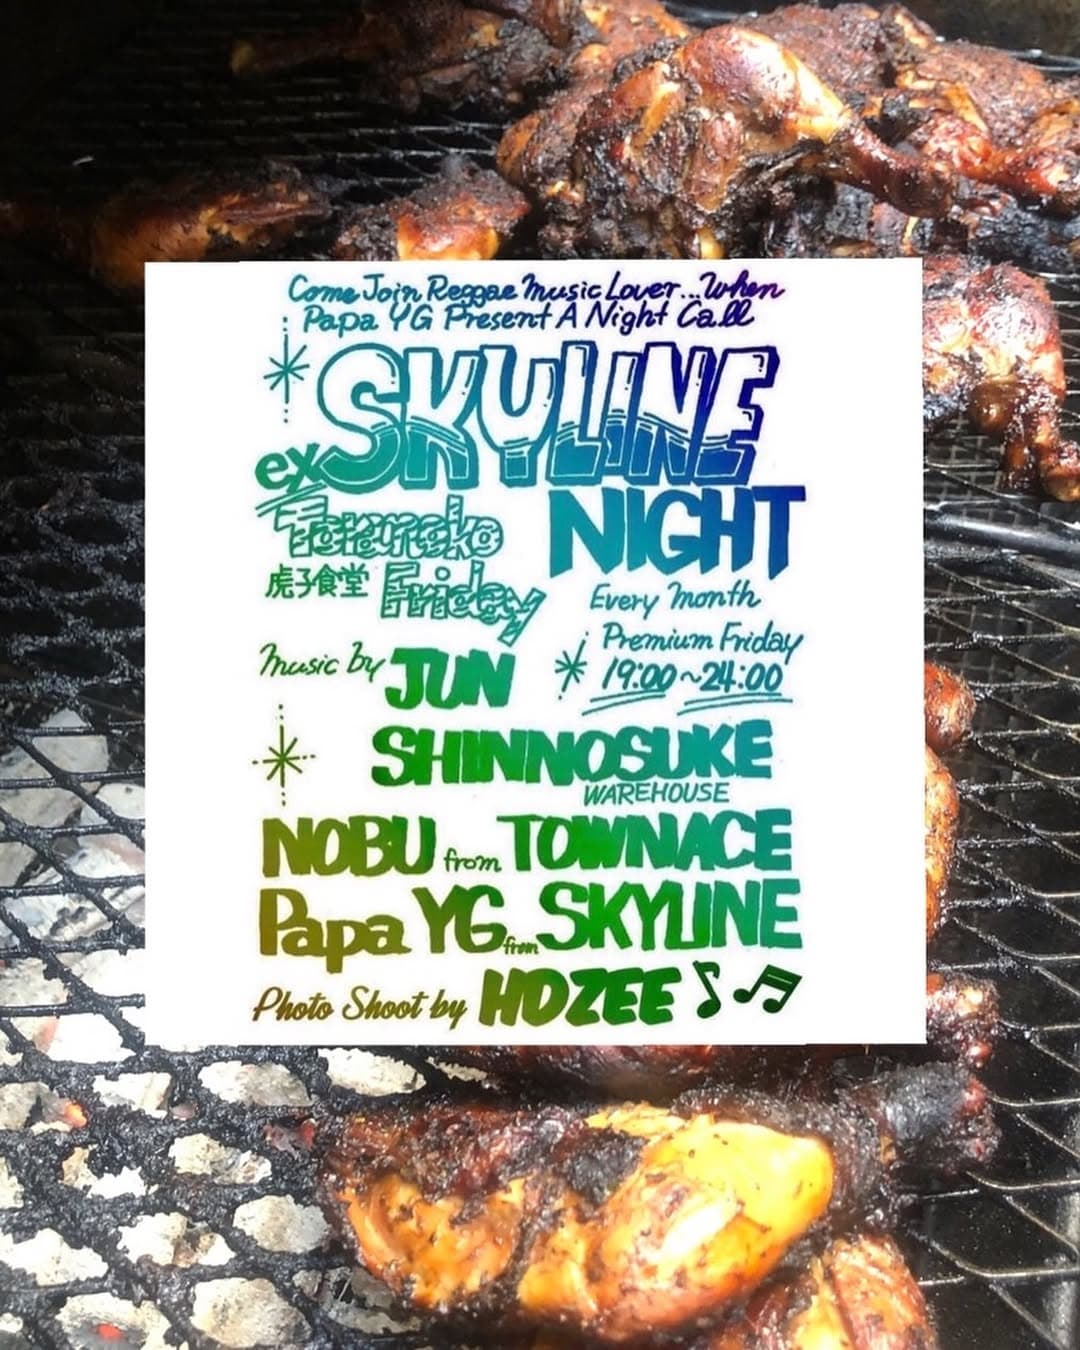 Come Join Reggae Music Lover...When
Papa YG Present A Night Call
SKYLINE
ex
NIGHT
Toraneko
虎子食堂 Friday
Every Month
Premium Friday
19:00~24:00
Music by JUN
SHINNOSUKE
WAREHOUSE
NOBU from TOWNACE
Papa YG from SKYLINE
Photo Shoot by HDZEE